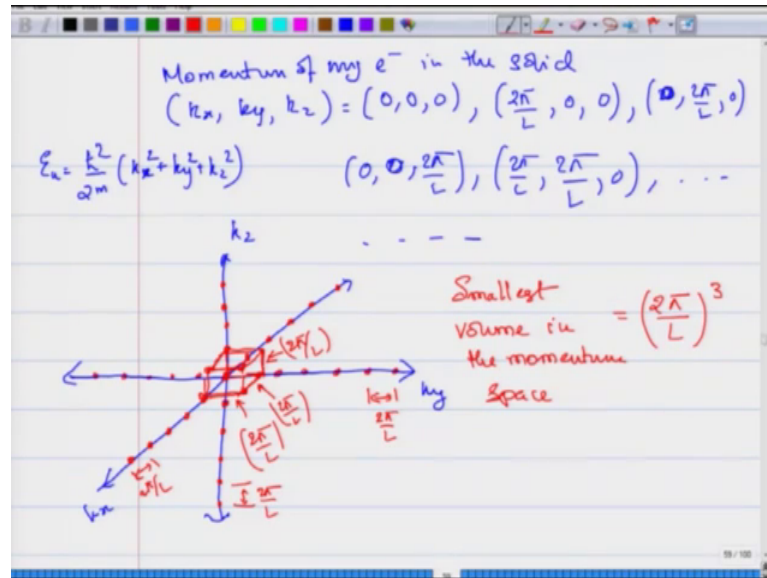 Momentum of my e⁻ in the solid
(kx, ky, kz) = (0,0,0), (2π/L, 0, 0), (0, 2π/L, 0)
Ɛk = ħ²/2m (kx² + ky² + kz²)
(0, 0, 2π/L), (2π/L, 2π/L, 0), . . .
. . . .
kz
Smallest
volume in
the momentum
space
= (2π/L)³
(2π/L)
ky
2π/L
(2π/L)
(2π/L)
2π/L
kx
2π/L
59 / 100